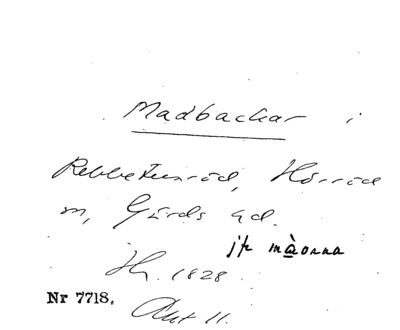 Madbackar i
Rebbetuaröd, Hörröd
sn, Gärds hd.
jfr màonna
Hr. 1828.
Nr 7718.
Akt 11.